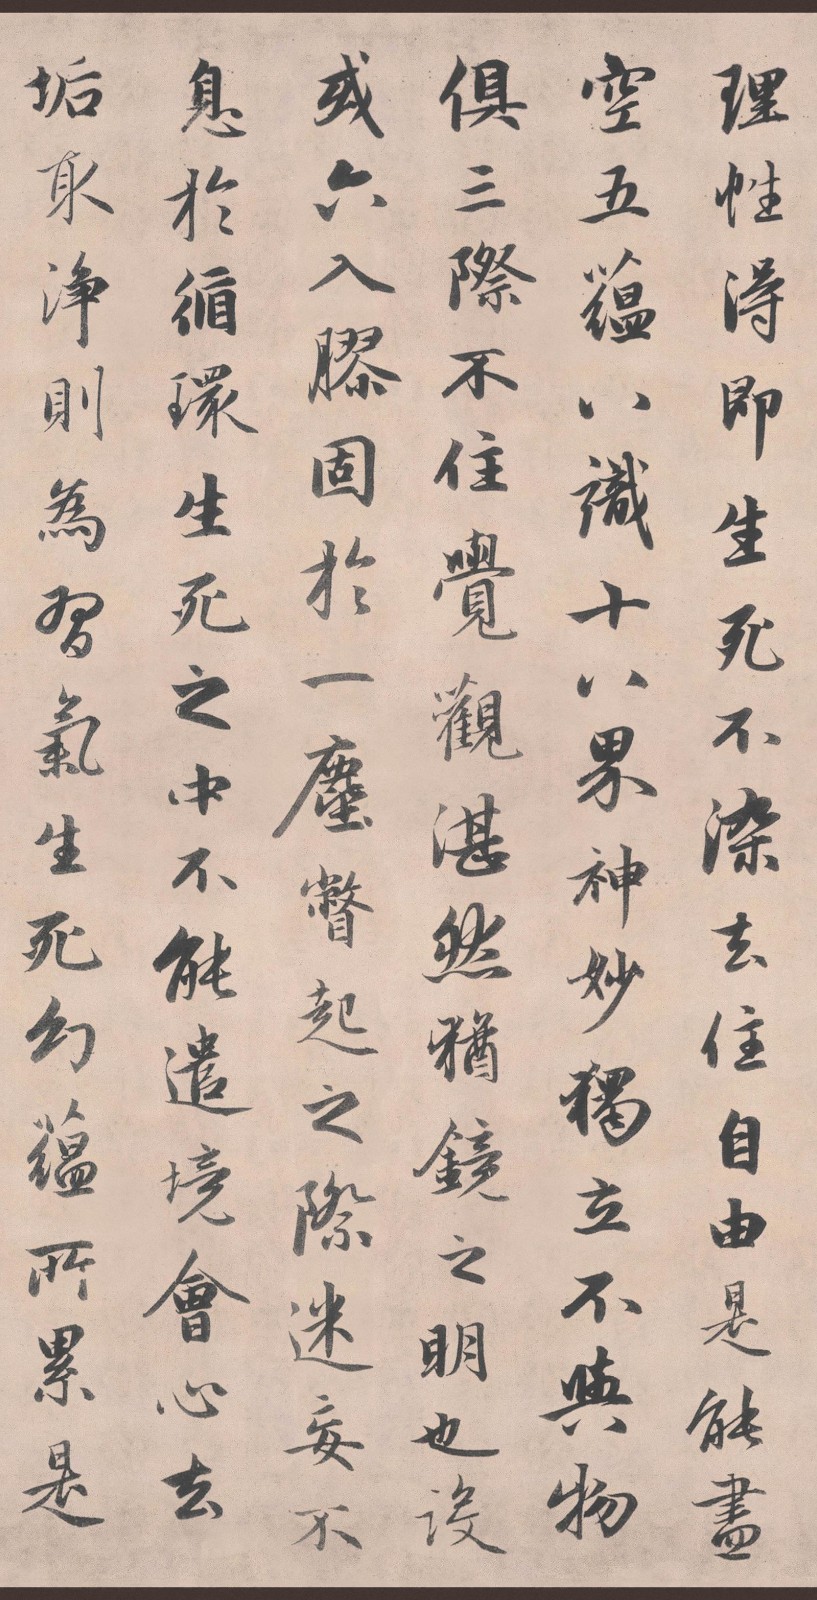 理性得即生死不染去住自由是能盡
空五蘊八識十八界神妙獨立不與物
俱三際不住覺觀湛然猶鏡之明也設
或六入膠固於一塵瞥起之際迷妄不
息於循環生死之中不能遣境會心去
垢取淨則為習氣生死幻蘊所累是